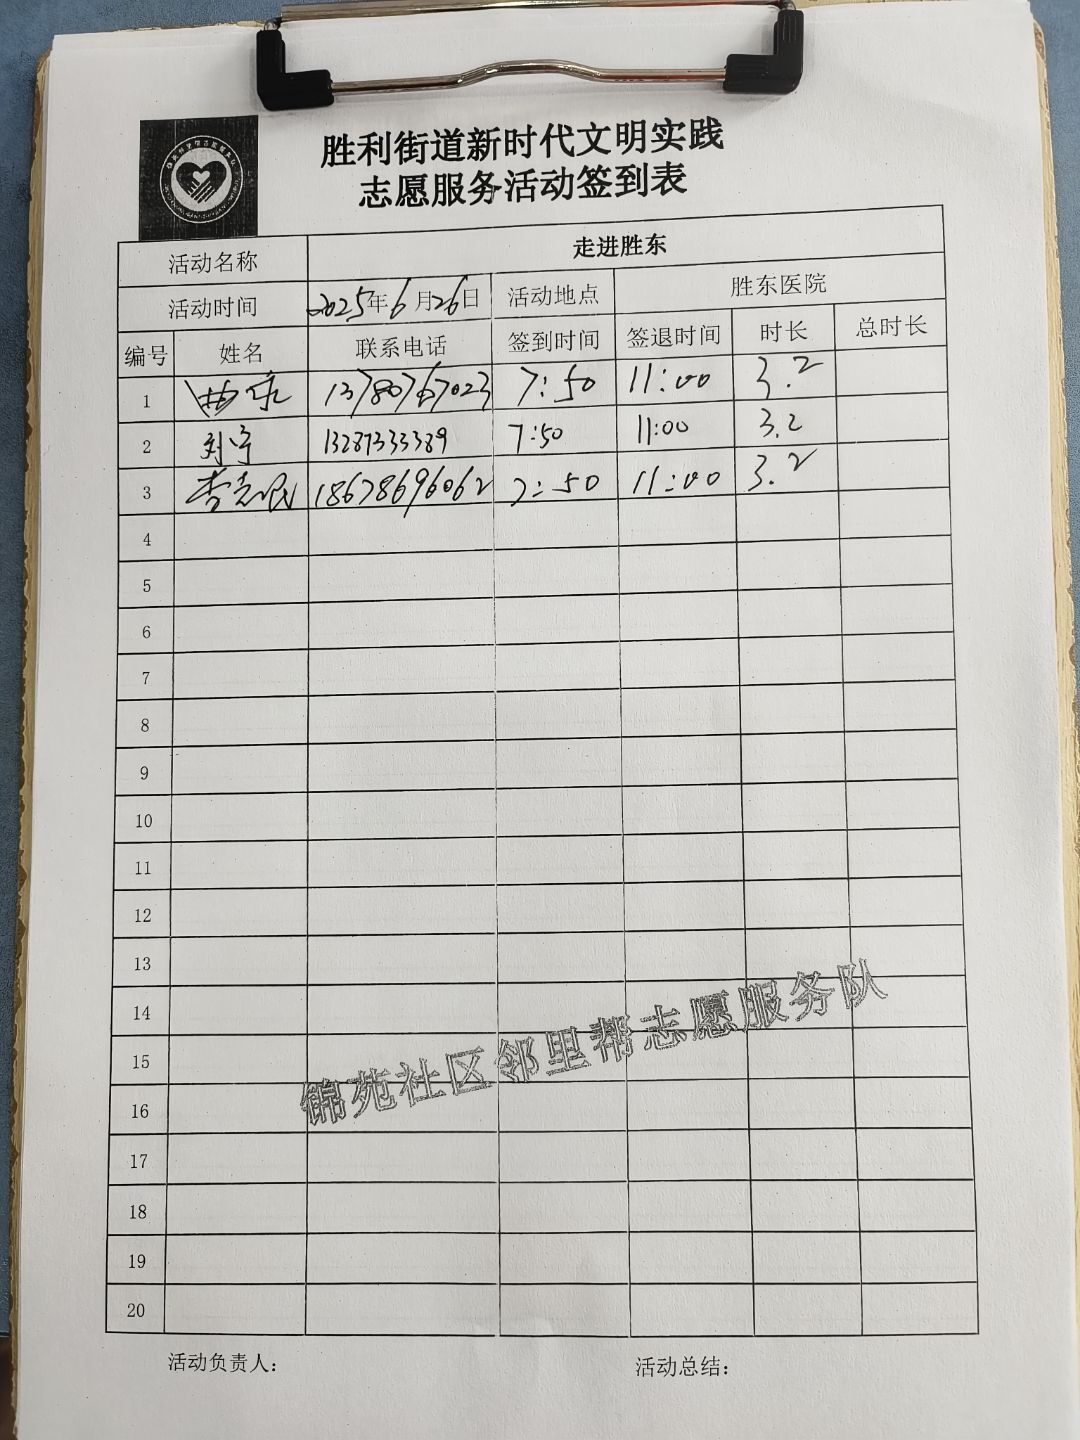 胜利街道新时代文明实践
志愿服务活动签到表
活动名称 走进胜东
活动时间 2025年6月26日 活动地点 胜东医院
编号 姓名 联系电话 签到时间 签退时间 时长 总时长
1 13780767023 7:50 11:00 3.2
2 刘宁 13287333389 7:50 11:00 3.2
3 李志民 18678696062 7:50 11:00 3.2
4
5
6
7
8
9
10
11
12
13
14
15
16
17
18
19
20
锦苑社区邻里帮志愿服务队
活动负责人: 活动总结: